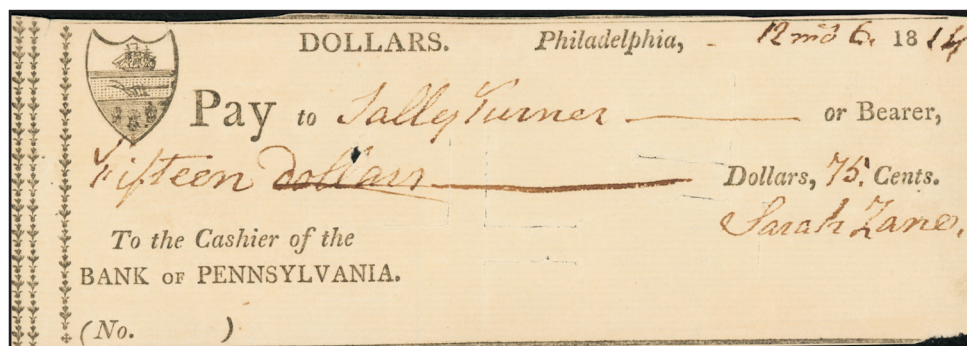 DOLLARS. Philadelphia, 12 mo 6. 1814
Pay to Sally Turner or Bearer,
Fifteen dollars Dollars, 75. Cents.
Sarah Zane.
To the Cashier of the
BANK OF PENNSYLVANIA.
(No. )